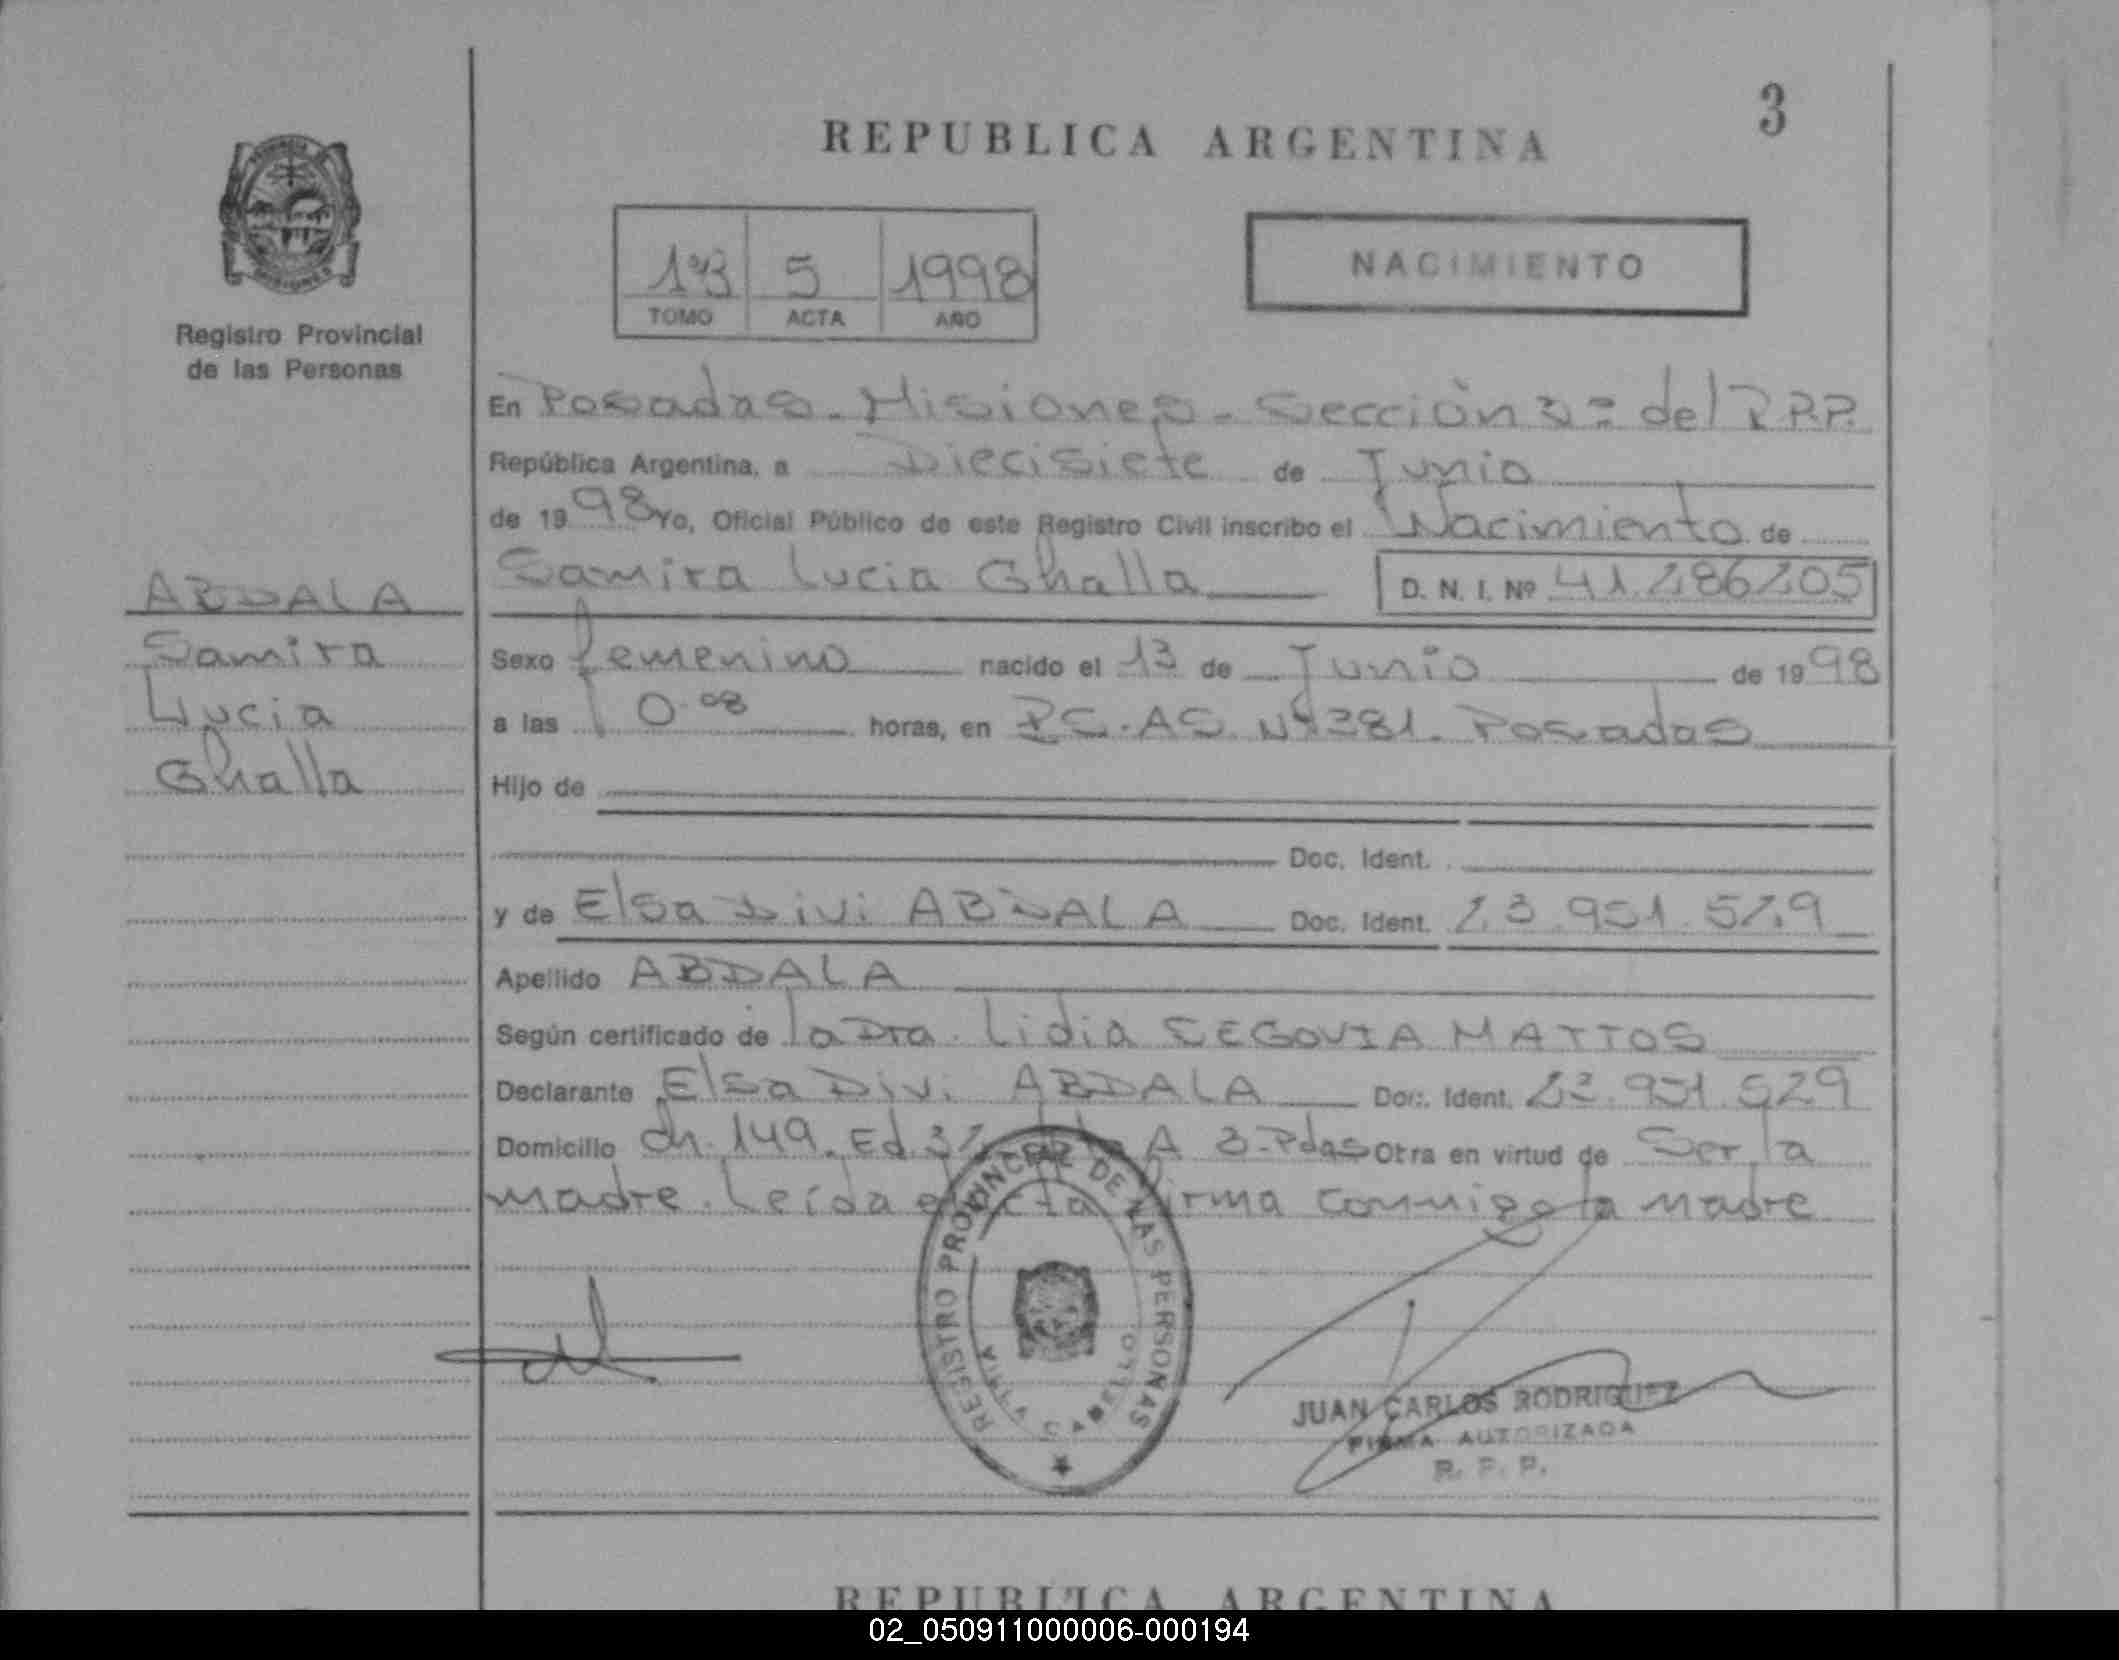 REPUBLICA ARGENTINA
3
PROVINCIA DE
MISIONES
Registro Provincial
de las Personas
5 1998
TOMO ACTA AÑO
NACIMIENTO
En Posadas - Misiones - Sección 3ª del R.P.P.
República Argentina, a Diecisiete de Junio
de 1998 Yo, Oficial Público de este Registro Civil inscribo el Nacimiento de
Samira Lucia Ghalla D. N. I. Nº 41.286205
ABDALA
Samira
Lucia
Ghalla
Sexo femenino nacido el 13 de Junio de 1998
a las 0.08 horas, en P.S.-A.S. Nº 381. Posadas
Hijo de
Doc. Ident.
y de Elsa Divi ABDALA Doc. Ident. 23.951.529
Apellido ABDALA
Según certificado de la Dra. Lidia SEGOVIA MATTOS
Declarante Elsa Divi ABDALA Doc. Ident. 23.951.529
Domicilio Ch. 149. Ed. A 3-Pdas Otra en virtud de Ser la
madre. Leída el acta firma conmigo la madre
REGISTRO PROVINCIAL DE LAS PERSONAS
VILLA CABELLO
JUAN CARLOS RODRIGUEZ
FIRMA AUTORIZADA
R. P. P.
REPUBLICA ARGENTINA
02_050911000006-000194